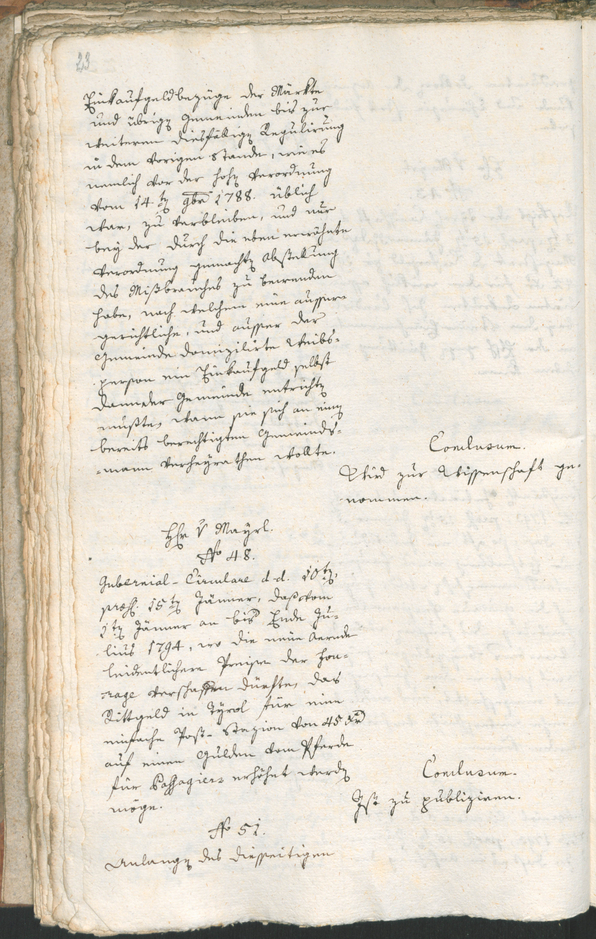 23
Einkaufgeldbezüge der Märkte
und übrigen Gemeinden bis zur
weiteren diesfälligen Regulirung
in dem vorigen Stande, wie es
nemlich vor der hohen Verordnung
vom 14ten 9br 1788. üblich
war, zu verbleiben, und nur
bey der durch die eben erwähnte
Verordnung gemachten Abstellung
des Mißbrauches zu bewenden
habe, nach welchem eine ausser-
gerichtliche, und ausser der
Gemeinde domizilirte Weibs-
person ein Einkaufgeld selbst
dann der Gemeinde entrichten
mußte, wann sie sich an einen
bereits berechtigten Gemeinds-
mann verheyrathen wollte.
Conclusum.
Wird zur Wissenschaft ge-
nommen.
Hr v Mayrl.
No 48.
Gubernial-Circulare d. d. 10ten,
præs. 15ten Jänner, daß vom
1ten Jänner an bis Ende Ju-
lius 1794, wo die neue Aernde
leidentlichere Preise der Fou-
rage verschaffen dürfte, das
Rittgeld in Tyrol für eine
einfache Post-Stazion von 45 xr
auf einen Gulden vom Pferde
für Passagiers erhöhet werden
möge.
Conclusum.
Ist zu publiziren.
No 51.
Anlangen des diesseitigen